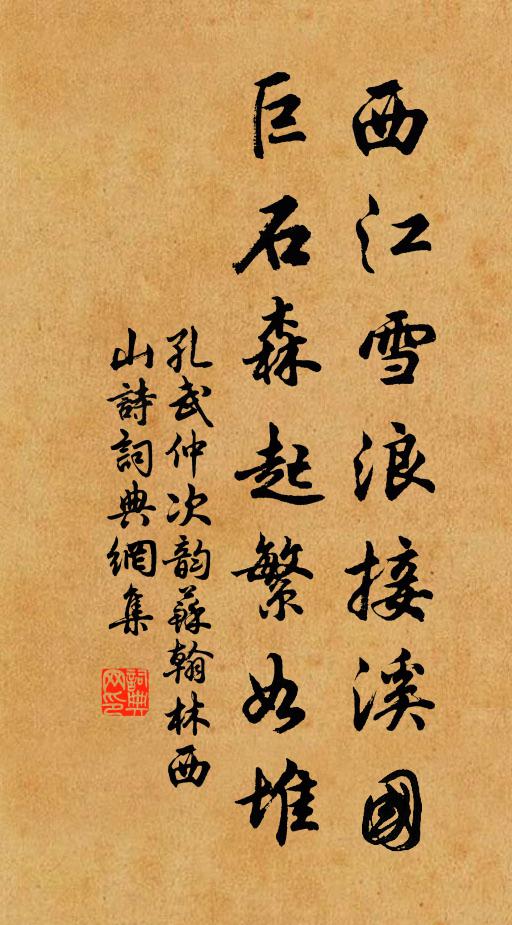 西江雪浪接溪國
巨石森起繁如堆
孔武仲次韵蘇翰林西
山詩詞典網集
詞典
网印